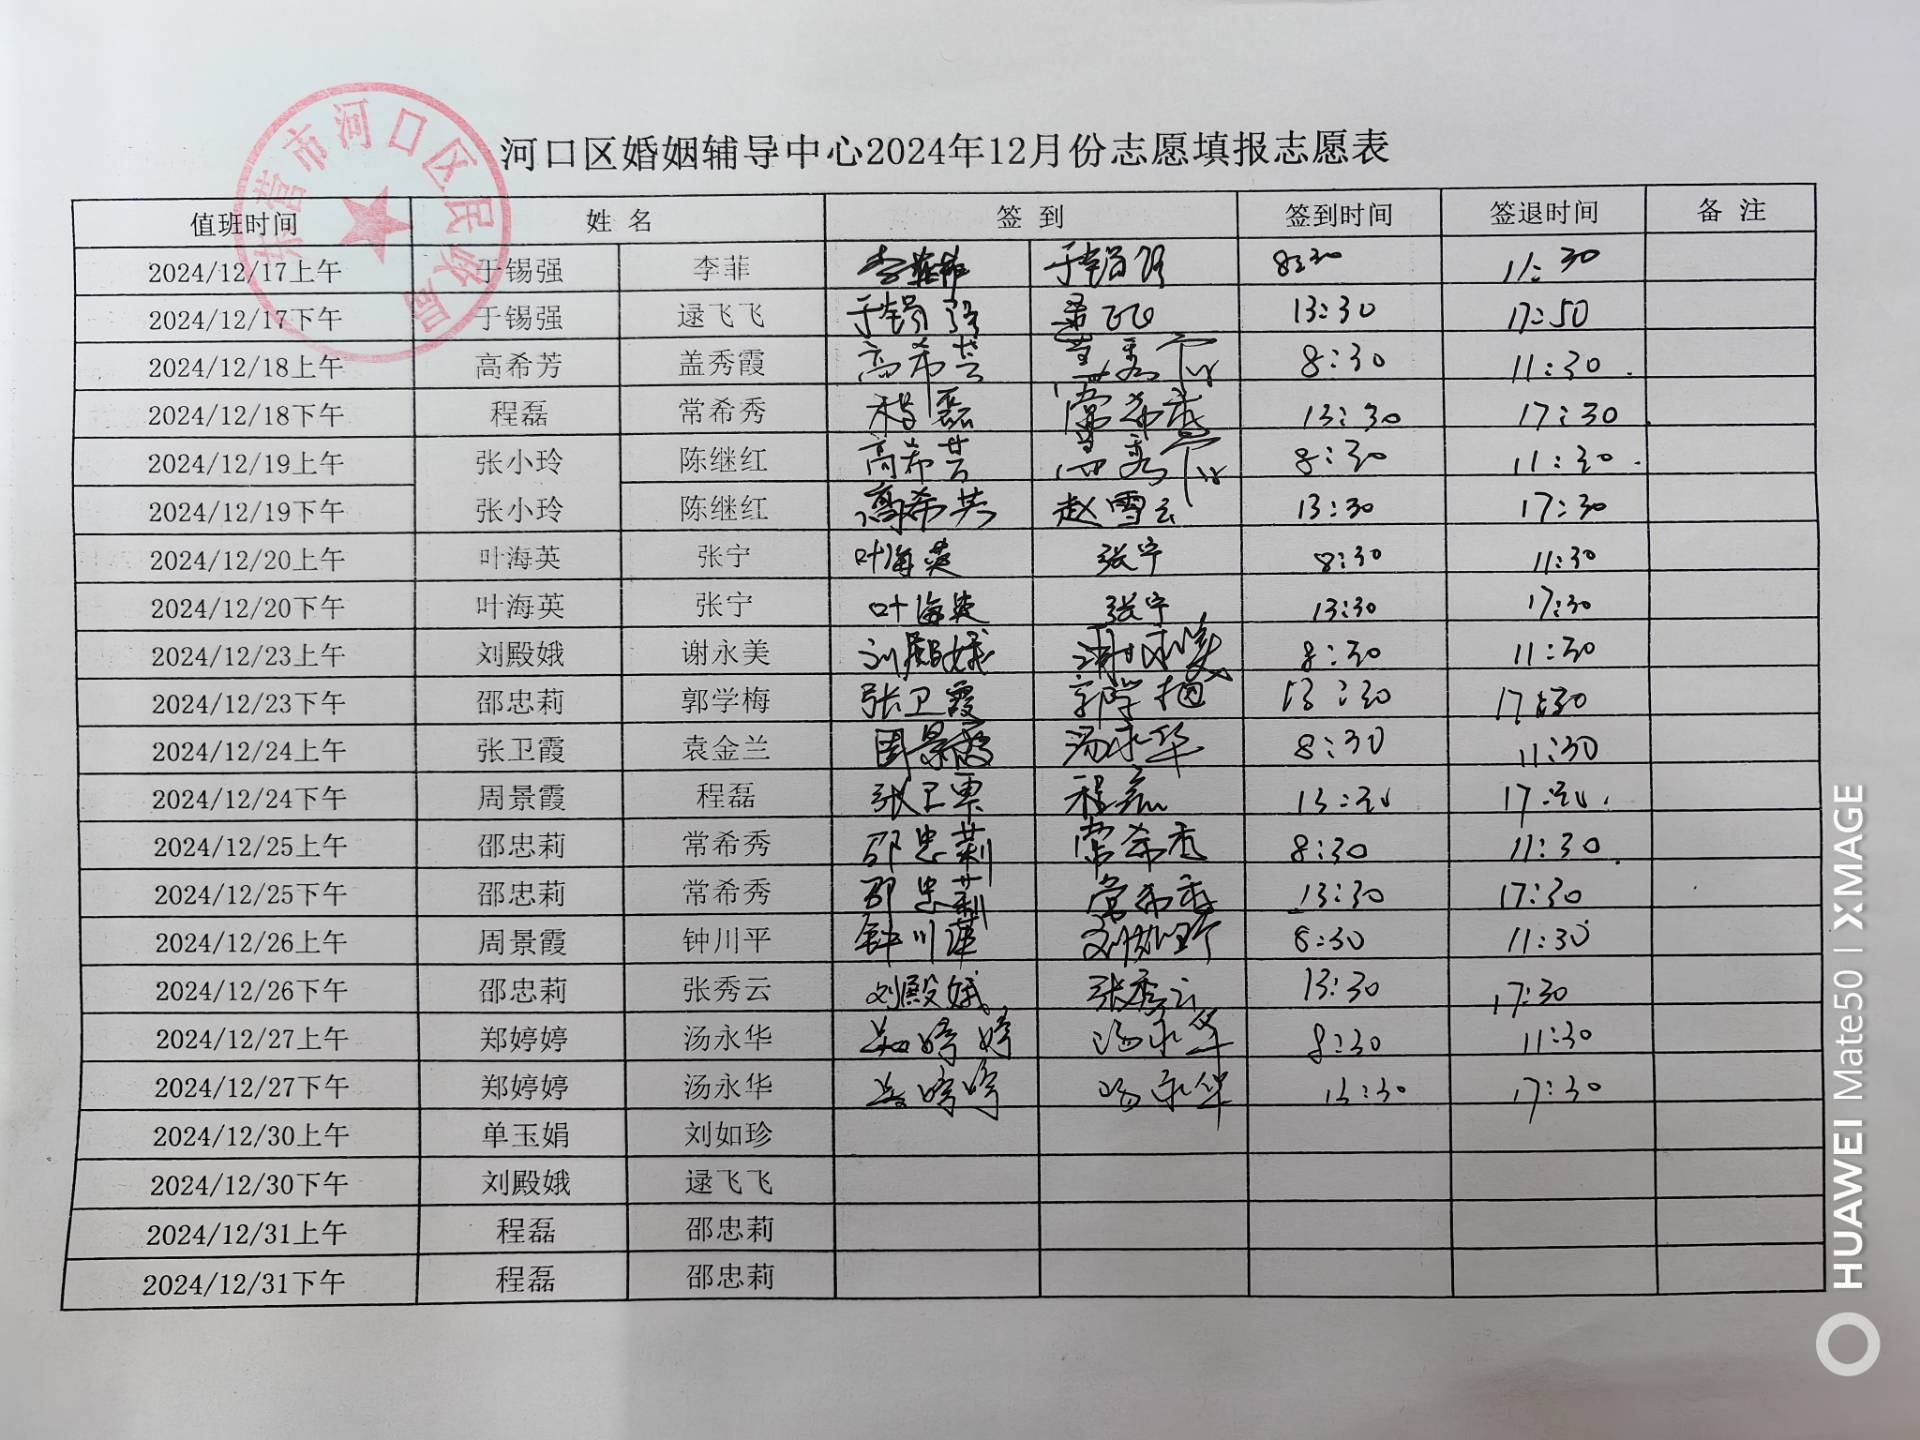 东营市河口区民政局
河口区婚姻辅导中心2024年12月份志愿填报志愿表
值班时间 姓 名 签 到 签到时间 签退时间 备 注
2024/12/17上午 于锡强 李菲 李菲 于锡强 8:30 11:30
2024/12/17下午 于锡强 逯飞飞 于锡强 逯飞飞 13:30 17:50
2024/12/18上午 高希芳 盖秀霞 高希芳 盖秀霞 8:30 11:30
2024/12/18下午 程磊 常希秀 程磊 常希秀 13:30 17:30
2024/12/19上午 张小玲 陈继红 高希芳 盖秀霞 8:30 11:30
2024/12/19下午 张小玲 陈继红 高希芳 赵雪云 13:30 17:30
2024/12/20上午 叶海英 张宁 叶海英 张宁 8:30 11:30
2024/12/20下午 叶海英 张宁 叶海英 张宁 13:30 17:30
2024/12/23上午 刘殿娥 谢永美 刘殿娥 谢永美 8:30 11:30
2024/12/23下午 邵忠莉 郭学梅 张卫霞 郭学梅 13:30 17:30
2024/12/24上午 张卫霞 袁金兰 周景霞 汤永华 8:30 11:30
2024/12/24下午 周景霞 程磊 张卫覃 程磊 13:30 17:30
2024/12/25上午 邵忠莉 常希秀 邵忠莉 常希秀 8:30 11:30
2024/12/25下午 邵忠莉 常希秀 邵忠莉 常希秀 13:30 17:30
2024/12/26上午 周景霞 钟川平 钟川萍 8:30 11:30
2024/12/26下午 邵忠莉 张秀云 刘殿娥 张秀云 13:30 17:30
2024/12/27上午 郑婷婷 汤永华 郑婷婷 汤永华 8:30 11:30
2024/12/27下午 郑婷婷 汤永华 郑婷婷 汤永华 13:30 17:30
2024/12/30上午 单玉娟 刘如珍
2024/12/30下午 刘殿娥 逯飞飞
2024/12/31上午 程磊 邵忠莉
2024/12/31下午 程磊 邵忠莉
HUAWEI Mate50 | XMAGE